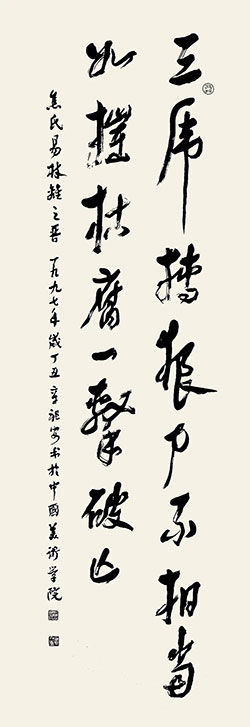 三虎搏狼力不相當
如摧枯腐一擊破亡
焦氏易林離之晉 一九九七年歲丁丑章祖安书於中國美術学院